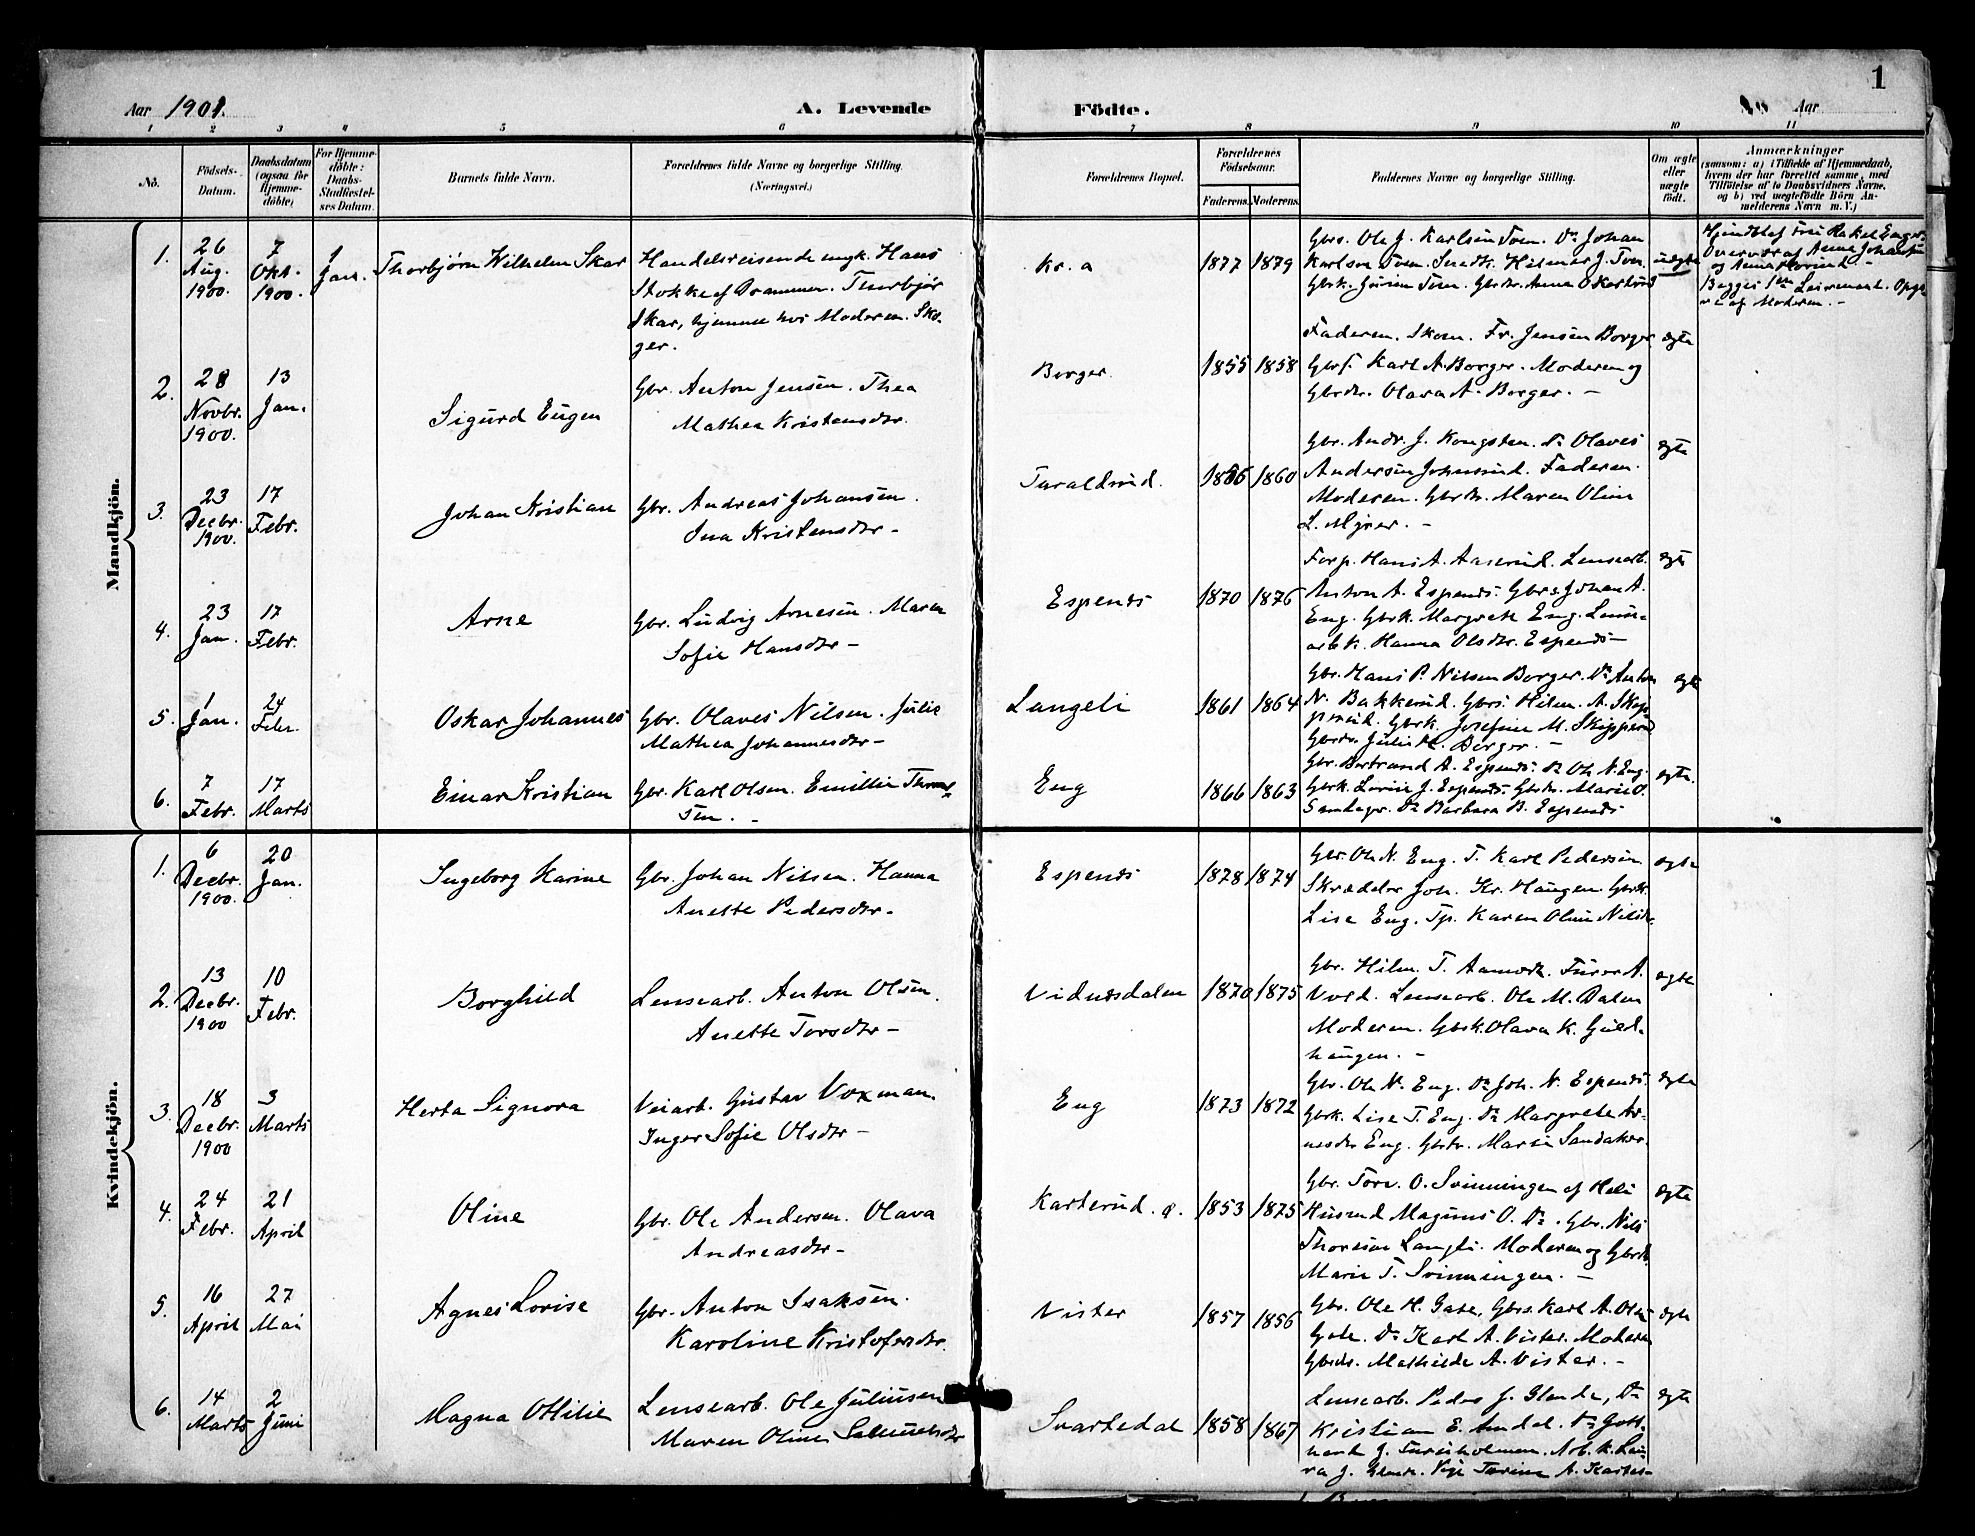 Aar 1901.
A. Levende Födte.
Aar
1
1 2 3 4 5 6 7 8 9 10 11
No.
Födsels-Datum.
Daabsdatum (ogsaa for Hjemme-döbte)
For Hjemme-döbte: Daabs-Stadfæstel-ses Datum.
Barnets fulde Navn.
Forældrenes fulde Navne og borgerlige Stilling.
(Næringsvei.)
Forældrenes Bopæl.
Forældrenes Födselsaar.
Faderens. Moderens.
Faddernes Navne og borgerlige Stilling.
Om ægte eller uægte födt.
Anmærkninger
(saasom: a) i Tilfælde af Hjemmedaab,
hvem der har forrettet samme, med
Tilföielse af to Daabsvidners Navne,
og b) ved uægtefödte Börn An-
melderens Navn m. V.)
Mandkjön.
1.
26 Aug. 1900.
7 Okt. 1900.
1 Jan.
Thorbjørn Wilhelm Skar
Handelsreisende ungk. Hans
Stokke af Drammen. Thorbjør
Skar, hjemme hos Moderen. Sko-
ger.
Kr.a
1877 1879
Gbrs. Ole J. Karlsen Tven. Do Johan
Karlsen Tven. Snedk. Hilmar J. Tven
uægte
og Anna
af Moderen. -
2.
28 Novbr. 1900.
13 Jan.
Sigurd Eugen
Gbr. Anton Jensen. Thea
Mathea Kristensdtr.
Borger.
1855 1858
Faderen. Skom. Fr. Jensen Borger.
Gbrs. Karl A. Borger. Moderen og
Gbrdtr. Olava A. Borger. -
ægte
3.
23 Decbr. 1900.
17 Febr.
Johan Kristian
Gbr. Andreas Johansen.
Ina Kristensdtr -
Taraldrud.
1856 1860
Gbr. Andr. J. Kongsten. Do Olaves
Andersen Johnsrud. Faderen.
Moderen. Gbrdtr. Maren Oline
L. Myrer. -
ægte
4.
23 Jan.
17 Febr.
Arne
Gbr. Ludvig Arnesen. Maren
Sofie Hansdtr -
Espenes
1870 1876
Forp. Hans A. Aaserud. Lensearb.
Anton A. Espenes. Gbrs. Johan A.
Eng. Gbrk. Margrete Eng. Lense-
arbk. Hanna Olsdtr. Espenes -
ægte
5.
1 Jan.
24 Febr.
Oskar Johannes
Gbr. Olaves Nilsen. Julie
Mathea Johannesdtr -
Langeli
1861 1864
Gbr. Hans P. Nilsen Borger. Do Anton
N. Bakkerud. Gbrs. Hilm. A. Skip-
perud. Gbrk. Josefine M. Skipperud
Gbrdtr. Julie M. Borger. -
ægte
6.
7 Febr.
17 Marts
Einar Kristian
Gbr. Karl Olsen. Emillie
Eng
1866 1863
Gbr. Bertrand A. Espenes. Do Ole N. Eng.
Gbrk. Lovise J. Espenes. Gbrdtr. Marie O.
Sandager. Do Barbara B. Espenes
ægte.
Kvindekjön.
1.
6 Decbr. 1900.
20 Jan.
Ingeborg Karine
Gbr. Johan Nilsen. Hanna
Anette Pedersdtr. -
Espenes
1878 1874
Gbr. Ole N. Eng. T. Karl Pedersen.
Skrædder Joh. Kr. Haugen. Gbrk.
Lise Eng. Tp. Karen Oline
ægte
2.
13 Decbr. 1900
10 Febr.
Borghild
Lensearb. Anton Olsen.
Anette Torsdtr -
Vidnesdalen
1870 1875
Gbr. Hilm. T. Aamodt. A.
Vold. Lensearb. Ole M. Dalen
Moderen. Gbrk. Olava K. Guld-
haugen. -
ægte
3.
18 Decbr. 1900
3 Marts
Herta Signora
Veiarb. Gustav Voxman.
Inger Sofie Olsdtr -
Eng
1873 1872
Gbr. Ole N. Eng. Do Joh. N. Espenes.
Gbrk. Lise T. Eng. Do Margrete Ar-
nesdtr Eng. Gbrdtr. Marie Sandaker.
ægte
4.
24 Febr.
21 April
Oline
Gbr. Ole Andersen. Olava
Andreasdtr -
Karterud. ø.
1853 1875
Gbr. Tore O. Svinningen af Hæli
Husmd Magnus O. Do. Gbr. Nils
Thoresen Langli. Moderen og Gbrdtr.
Marie T. Svinningen. -
ægte
5.
16 April
27 Mai
Agnes Lovise
Gbr. Anton Isaksen.
Karoline Kristofersdtr.
Vister
1857 1856
Gbr. Ole H. Gate, Gbrs. Karl A. Olsen
Gate. Do Karl A. Vister. Moderen
Gbrdtr. Mathilde A. Vister. -
ægte
6.
14 Marts
2 Juni
Magna Otilie
Lensearb. Ole Juliusen
Maren Oline Samuelsdtr
Svartedal
1858 1867
Lensearb. Peder J. Glende, Do
Kristian E. Amdal. Do Gott-
hard J. Furuholmen. Arb.k. Lau-
ra J. Glende. Pige Torine A. Karter-
ægte